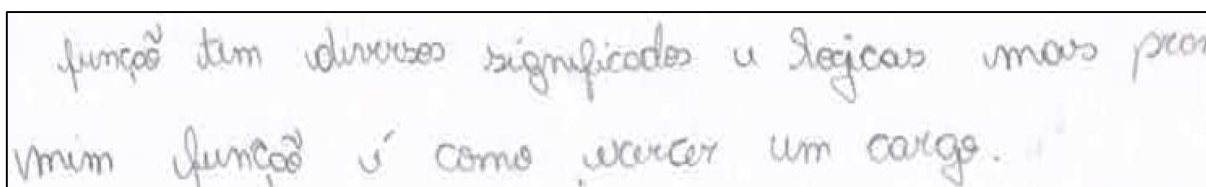 função tem diversos significados e logicas mas pra
mim função é como exercer um cargo.